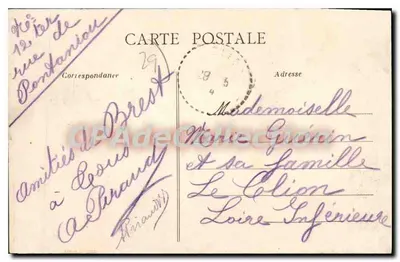 CARTE POSTALE
29
No
12 bis
rue de
Pontaniou
Correspondance
Adresse
Amitiés de Brest
à tous
A. Peraud
Mademoiselle
Marie Guérin
et sa famille
Le Clion
Loire Inférieure